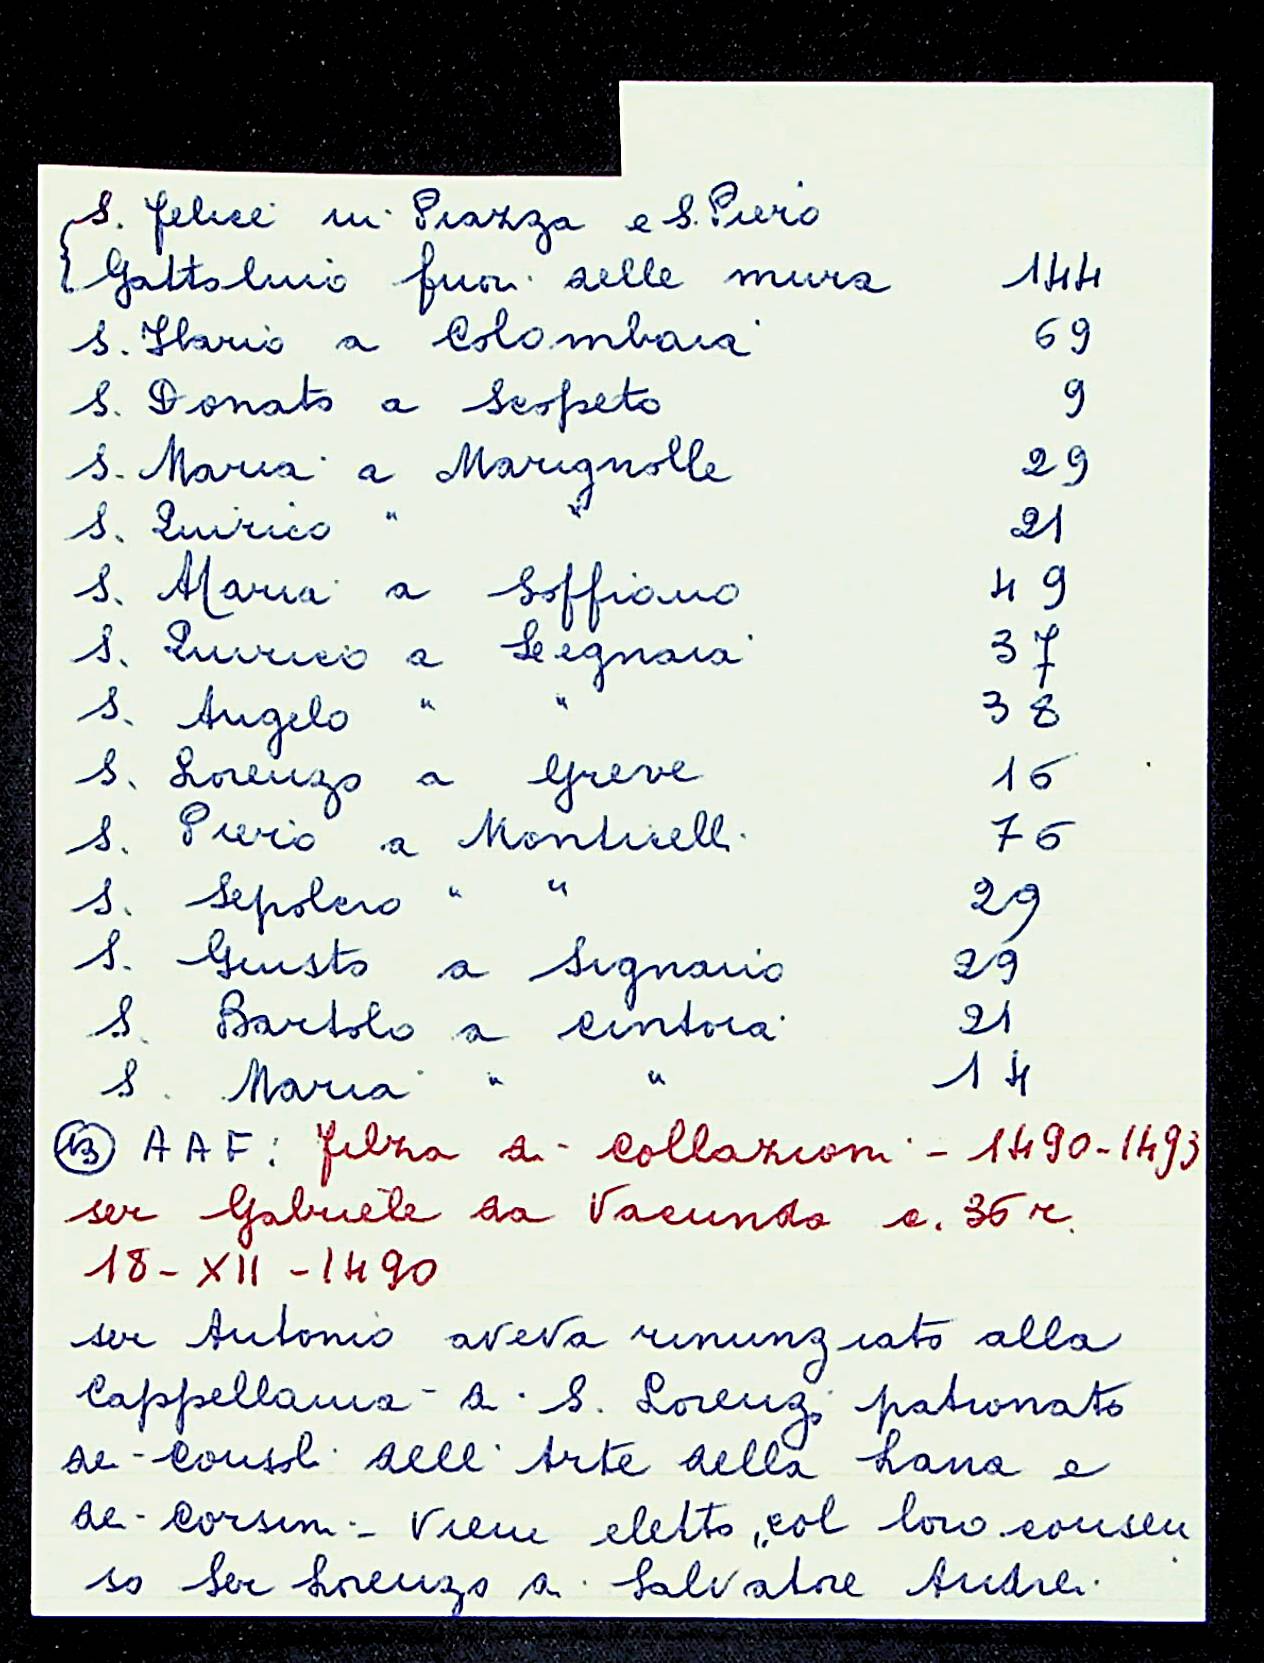 S. Felice in Piazza e S. Piero
Gattolino fuori delle mura 144
S. Ilario a Colombaia 69
S. Donato a Scopeto 9
S. Maria a Marignolle 29
S. Quirico " " 21
S. Maria a Soffiano 49
S. Quirico a Legnaia 37
S. Angelo " " 38
S. Lorenzo a Greve 16
S. Piero a Monticelli 76
S. Sepolcro " " 29
S. Giusto a Signano 29
S. Bartolo a Cintoia 21
S. Maria " " 14
13 AAF: Filza di Collazioni - 1490-1493
ser Gabriele da Vacunda c. 36 r.
18-XII-1490
ser Antonio aveva rinunziato alla
Cappellania di S. Lorenzo patronato
dei Consoli dell'Arte della Lana e
dei Corsini - Viene eletto, col loro consen
so Ser Lorenzo di Salvatore Andrei.